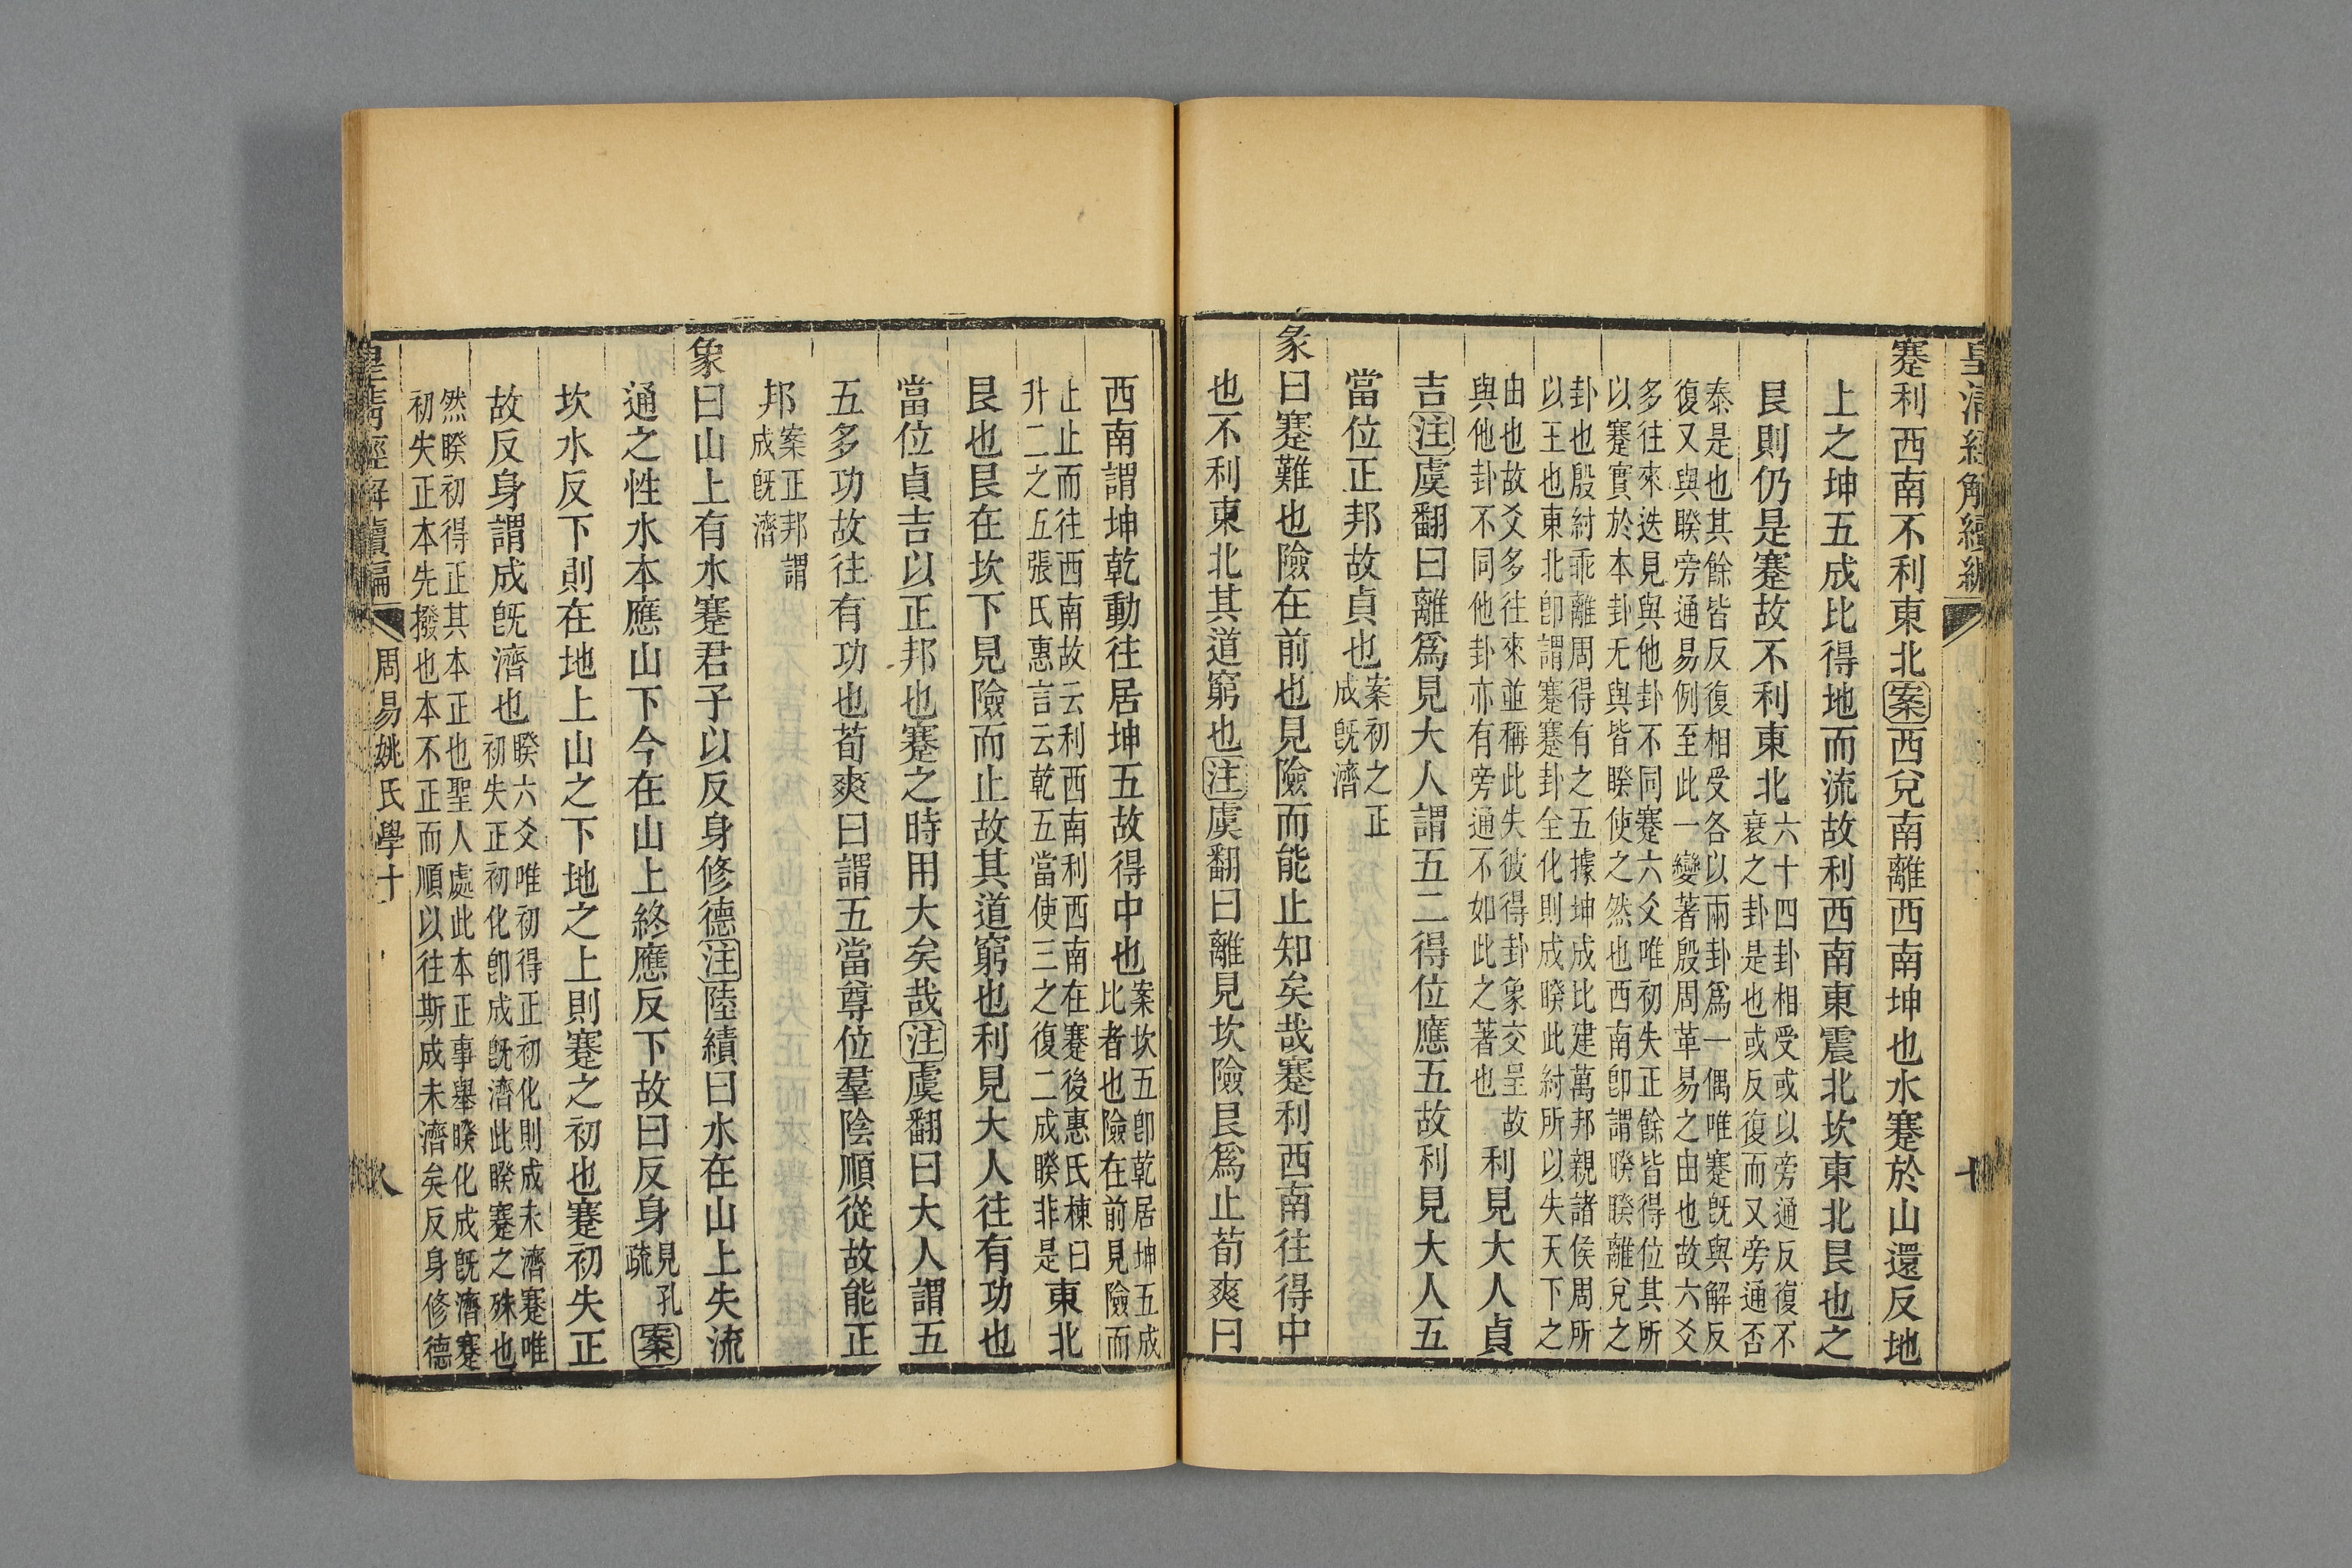 皇清經解續編
蹇利西南不利東北案西兌南離西南坤也水蹇於山還反地
上之坤五成比得地而流故利西南東震北坎東北艮也之
艮則仍是蹇故不利東北六十四卦相受或以旁通反復不
衰之卦是也或反復而又旁通否
泰是也其餘皆反復相受各以兩卦爲一偶唯蹇旣與解反
復又與睽旁通易例至此一變著殷周革易之由也故六爻
多往來迭見與他卦不同蹇六爻唯初失正餘皆得位其所
以蹇實於本卦无與皆睽使之然也西南卽謂睽睽離兌之
卦也殷紂乖離周得有之五據坤成比建萬邦親諸侯周所
以王也東北卽謂蹇蹇卦全化則成睽此紂所以失天下之
由也故爻多往來並稱此失彼得卦象交呈故
與他卦不同他卦亦有旁通不如此之著也
利見大人貞
吉注虞翻曰離爲見大人謂五二得位應五故利見大人五
當位正邦故貞也案初之正
成旣濟
彖曰蹇難也險在前也見險而能止知矣哉蹇利西南往得中
也不利東北其道窮也注虞翻曰離見坎險艮爲止荀爽曰
西南謂坤乾動往居坤五故得中也案坎五卽乾居坤五成
比者也險在前見險而
止止而往西南故云利西南利西南在蹇後惠氏棟曰
升二之五張氏惠言云乾五當使三之復二成睽非是
東北
艮也艮在坎下見險而止故其道窮也利見大人往有功也
當位貞吉以正邦也蹇之時用大矣哉注虞翻曰大人謂五
五多功故往有功也荀爽曰謂五當尊位羣陰順從故能正
邦案正邦謂
成旣濟
象曰山上有水蹇君子以反身修德注陸績曰水在山上失流
通之性水本應山下今在山上終應反下故曰反身見孔
疏
案
坎水反下則在地上山之下地之上則蹇之初也蹇初失正
故反身謂成旣濟也睽六爻唯初得正初化則成未濟蹇唯
初失正初化卽成旣濟此睽蹇之殊也
然睽初得正其本正也聖人處此本正事舉睽化成旣濟蹇
初失正本先撥也本不正而順以往斯成未濟矣反身修德
皇清經解續編
周易姚氏學十
八